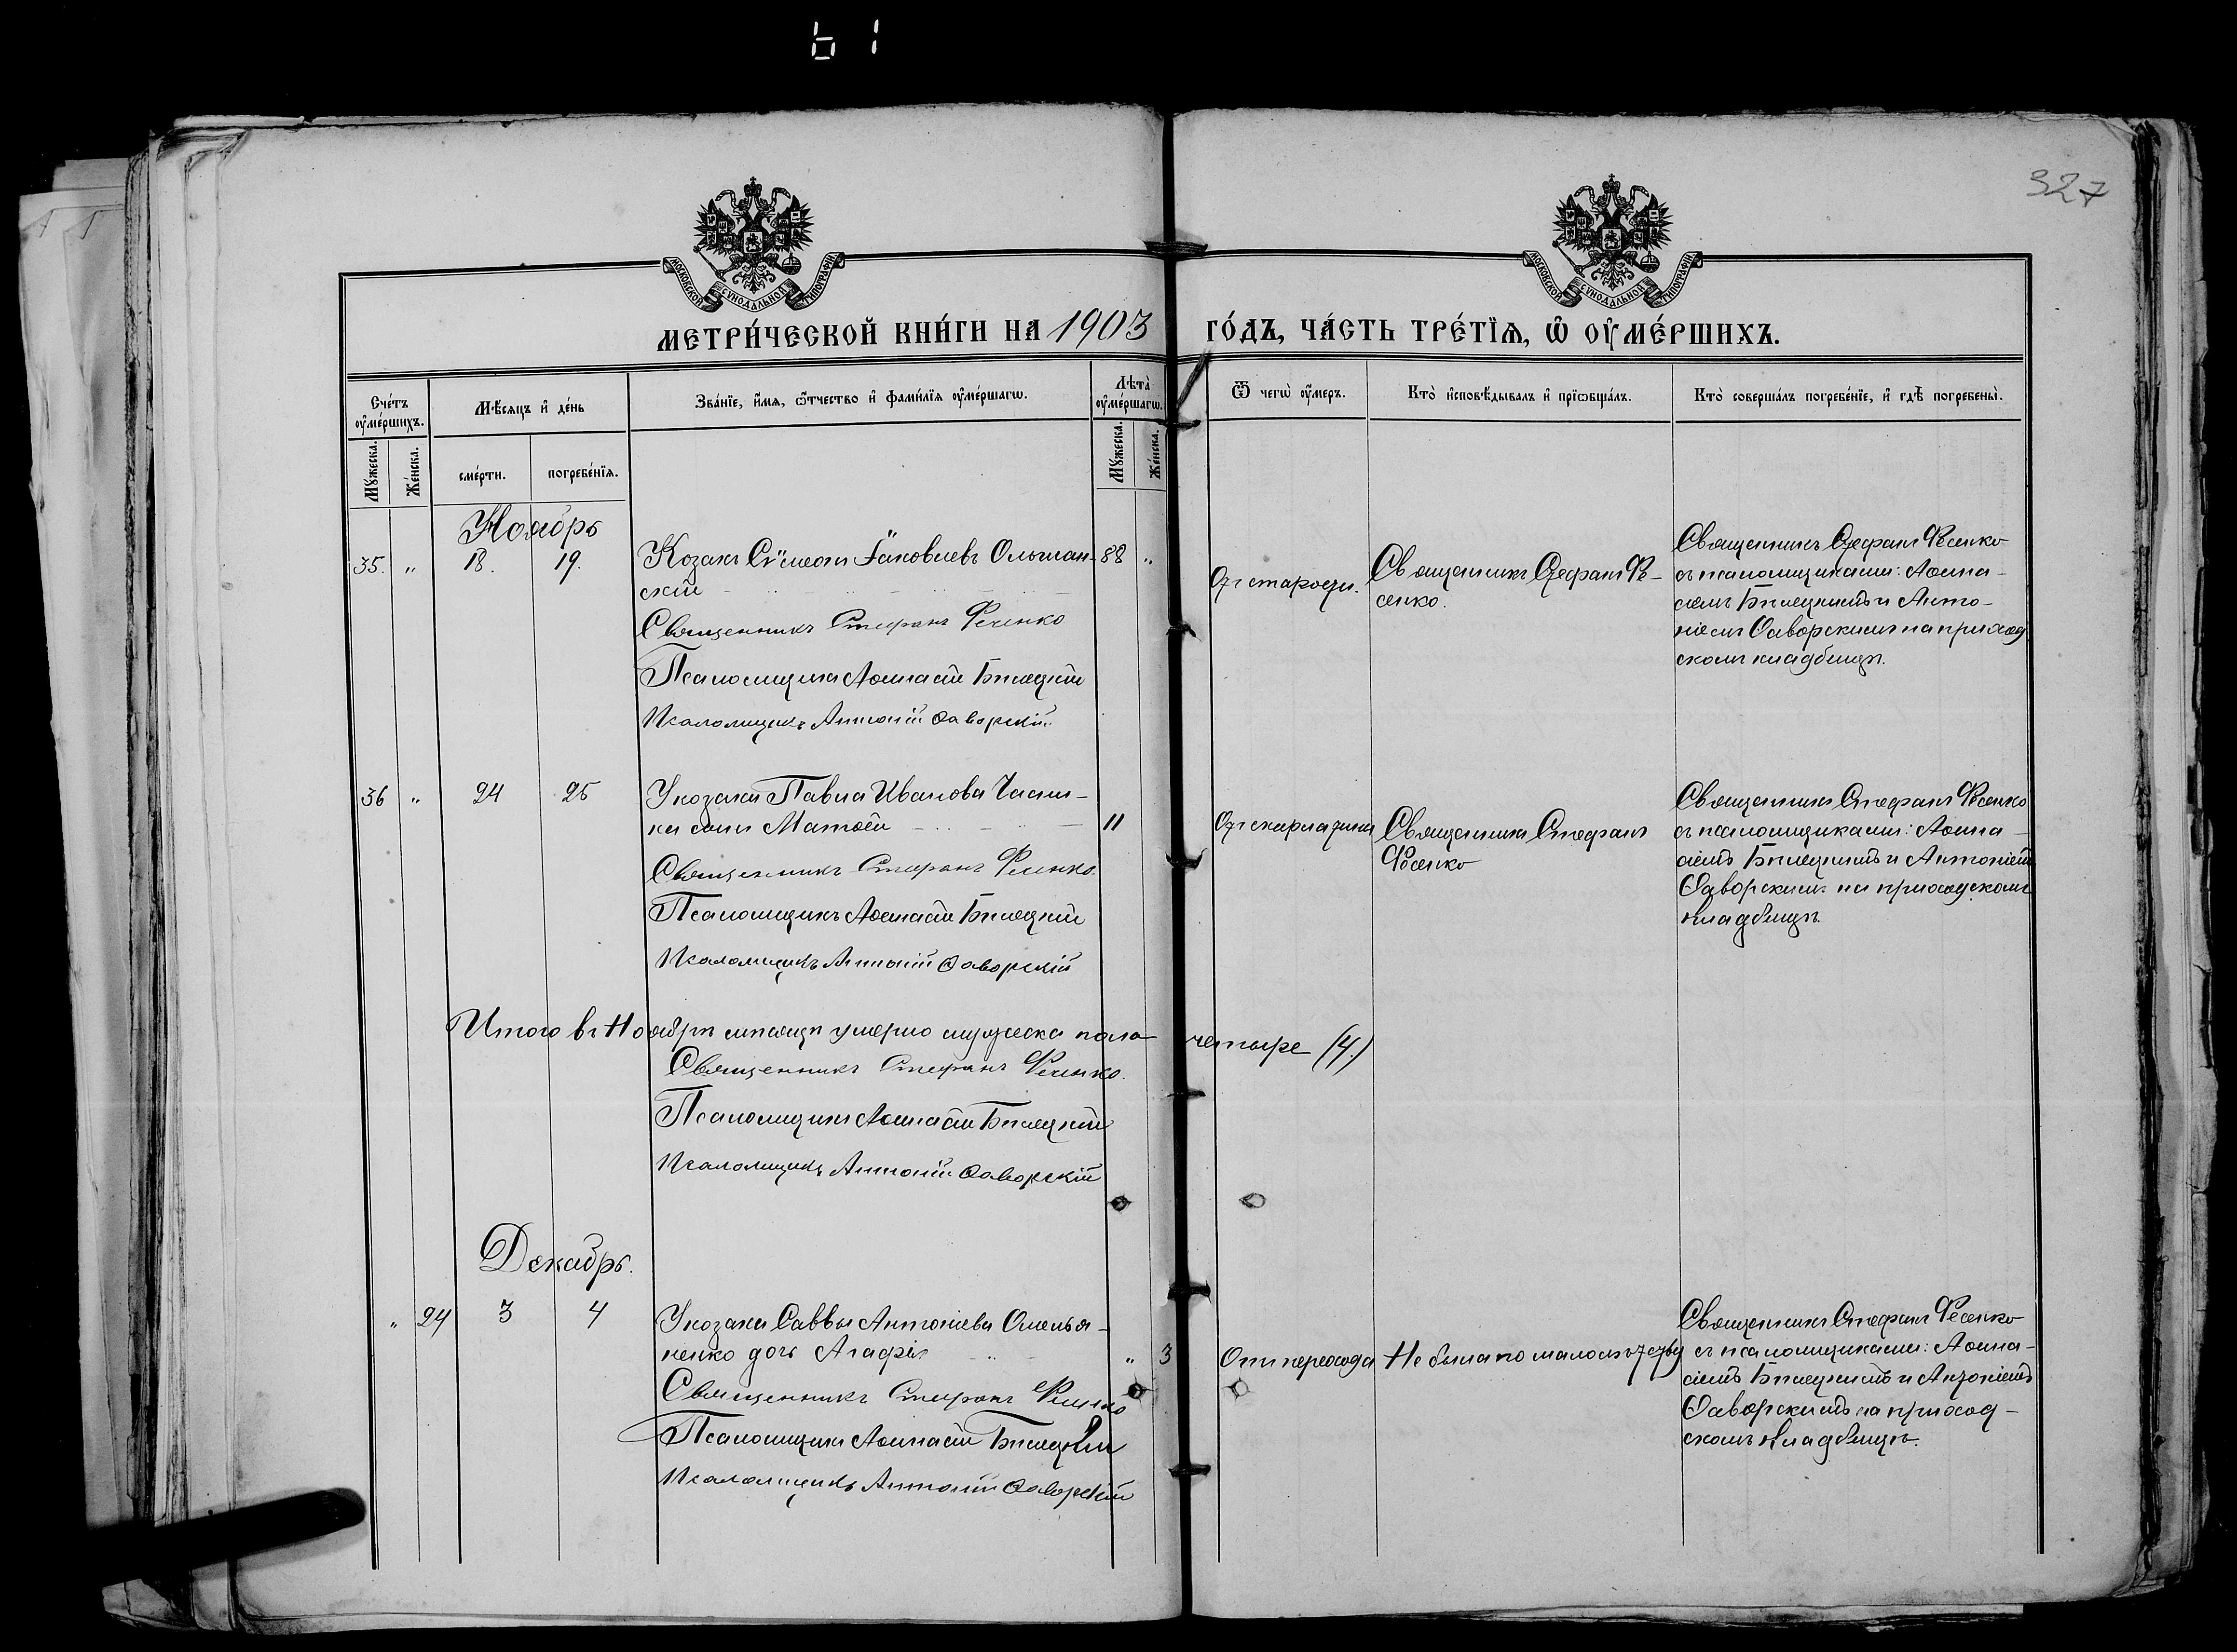 61
327
МОСКОВСКОЙ СѴНОДАЛЬНОЙ ТИПОГРАФІИ
МОСКОВСКОЙ СѴНОДАЛЬНОЙ ТИПОГРАФІИ
МЕТРИ́ЧЕСКОЙ КНИ́ГИ НА 1903 ГО́ДЪ, ЧА́СТЬ ТРЕ́ТЇѦ, Ѡ҆ ОУ҆МЕ́РШИХЪ.
Сче́тъ оу҆ме́ршихъ.
Мѣ́сѧцъ и҆ де́нь
Зва́нїе, и҆́мѧ, ѻ҆́тчество и҆ фами́лїѧ оу҆ме́ршагѡ.
Лѣта̀ оу҆ме́ршагѡ.
Ѿ чегѡ̀ оу҆́меръ.
Кто̀ и҆сповѣ́дывалъ и҆ прїѡбща́лъ.
Кто̀ соверша́лъ погребе́нїе, и҆ гдѣ̀ погребены̀.
Мꙋ́жеска.
Же́нска.
сме́рти.
погребе́нїѧ.
Мꙋ́жеска.
Же́нска.
Ноябрь
35. " 18. 19. Козакъ Сѵмеонъ Іаковлевъ Ольшан- 88 "
скій
Священникъ Стефанъ Фесенко
Псаломщикъ Аѳанасій Бѣлецкій
Псаломщикъ Антоній Ѳаворскій
Отъ старости.
Священникъ Стефанъ Фе-
сенко.
Священникъ Стефанъ Фесенко
съ псаломщиками: Аѳана-
сіемъ Бѣлецкимъ и Анто-
ніемъ Ѳаворскимъ на приход
скомъ кладбищѣ.
36 " 24 25 У козака Павла Иванова
сынъ Матѳей 11
Священникъ Стефанъ Фесенко.
Псаломщикъ Аѳанасій Бѣлецкій
Псаломщикъ Антоній Ѳаворскій
Отъ скарлатины
Священникъ Стефанъ
Фесенко
Священникъ Стефанъ Фесенко
съ псаломщиками: Аѳана-
сіемъ Бѣлецкимъ и Антоніемъ
Ѳаворскимъ на приходскомъ
кладбищѣ.
Итого въ Ноябрѣ мѣсяцѣ умерло мужеска пола четыре (4.)
Священникъ Стефанъ Фесенко.
Псаломщикъ Аѳанасій Бѣлецкій
Псаломщикъ Антоній Ѳаворскій
Декабрь.
" 24 3 4 У козака Саввы Антоніева Омелья-
ненко дочь Агафія " 3
Священникъ Стефанъ Фесенко
Псаломщикъ Аѳанасій Бѣлецкій
Псаломщикъ Антоній Ѳаворскій
Отъ перехода
Не была по малолѣтству
Священникъ Стефанъ Фесенко
съ псаломщиками: Аѳана-
сіемъ Бѣлецкимъ и Антоніемъ
Ѳаворскимъ на приход-
скомъ кладбищѣ.